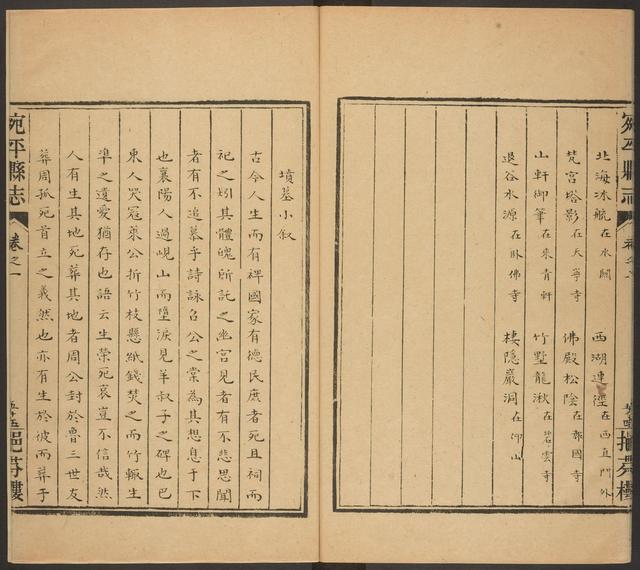 北海冰航在水關 西湖連徑在西直門外
梵宮塔影在天寧寺 佛殿松陰在報國寺
山軒御筆在來青軒 竹墅龍湫在碧雲寺
退谷水源在臥佛寺 棲隱巖洞在仰山
墳墓小叙
古今人生而有裨國家有德民庶者死且祠而
祀之矧其體魄所託之幽宮見者有不悲思聞
者有不追慕乎詩詠召公之棠為其想息于下
也襄陽人過峴山而墮淚見羊叔子之碑也巴
東人哭寇萊公折竹枝懸紙錢焚之而竹輙生
準之遺愛猶存也語云生榮死哀豈不信哉然
人有生其地死葬其地者周公封於魯三世友
葬周孤死首立之義然也亦有生於彼而葬于
宛平縣志
卷之一
挹芬樓
宛平縣志
卷之一
挹芬樓